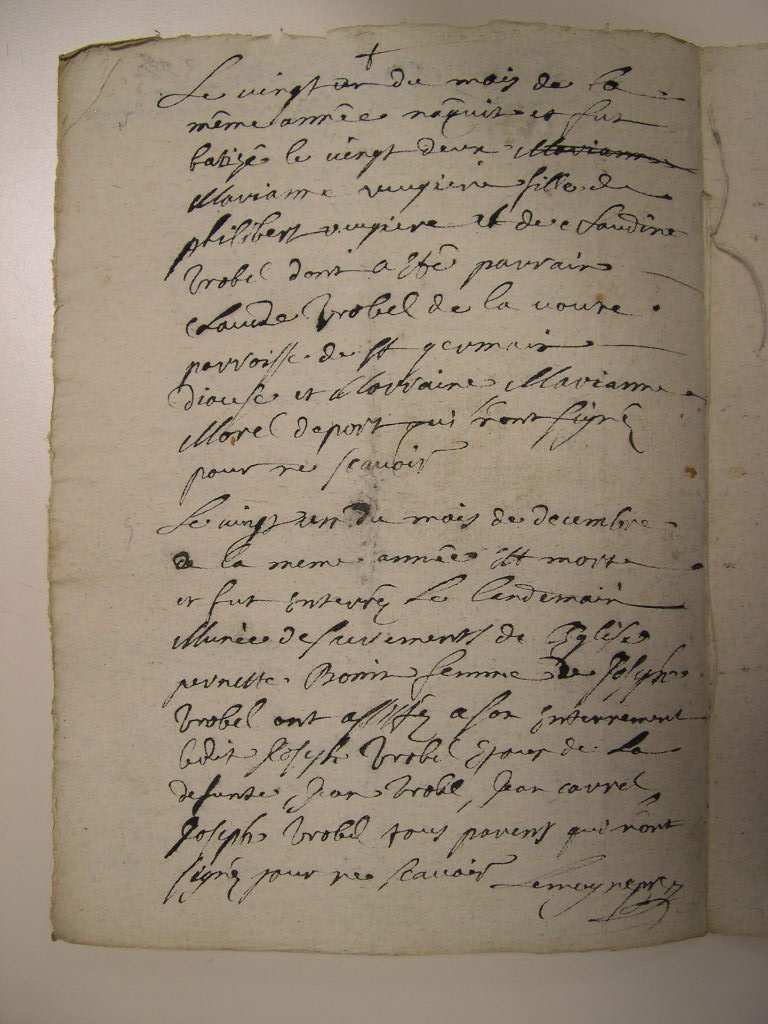 Le vingt un du mois de la
même année naquit et fut
batizé le vingt deux Marianne
Marianne vugiere fille de
philibert vugiere et de Claudine
Vrobel dont a esté parrain
Claude Vrobel de la voure
parroisse de st germain
diouse et Marraine Marianne
Morel deport qui n'ont signé
pour ne scavoir
Le vingt un du mois de decembre
de la meme année est morte
et fut enterrée Le lendemain
Munie des sacrements de Eglise
pernette Bonin femme de Joseph
Vrobel ont assisté a son enterrement
ledit Joseph Vrobel Epoux de La
defunte, Jean Vrobel, Jean carrel
Joseph Vrobel tous parens qui n'ont
signéz pour ne scavoir